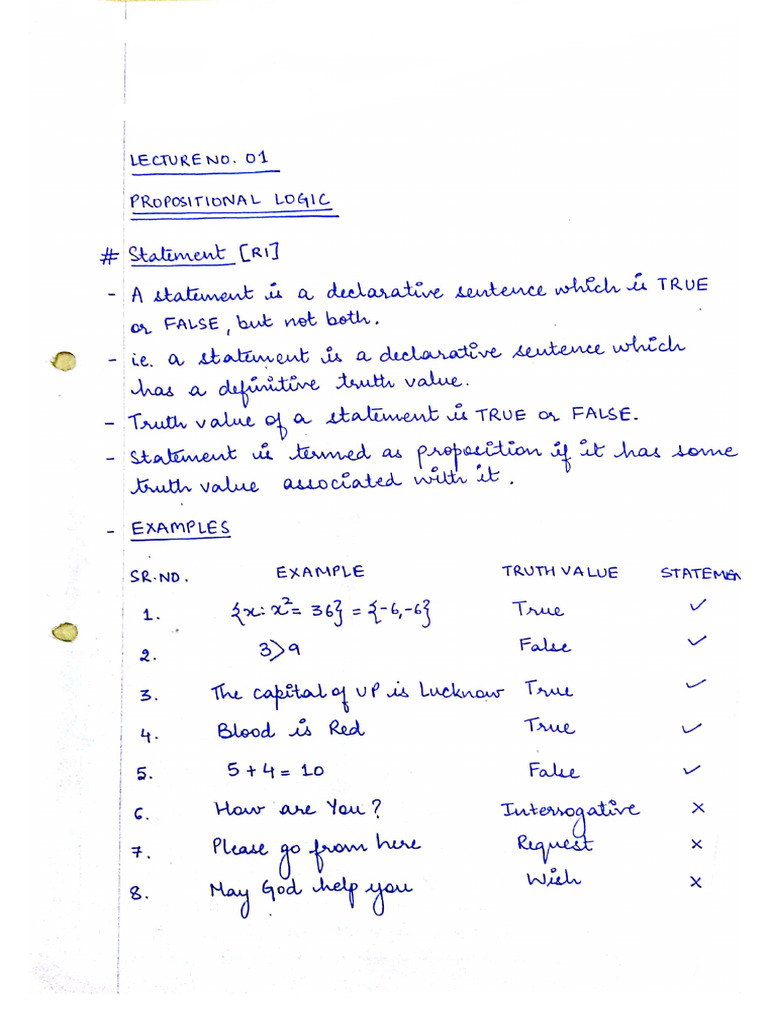 LECTURE NO. 01
PROPOSITIONAL LOGIC
# Statement [R1]
- A statement is a declarative sentence which is TRUE
or FALSE, but not both.
- ie. a statement is a declarative sentence which
has a definitive truth value.
- Truth value of a statement is TRUE or FALSE.
- Statement is termed as proposition if it has some
truth value associated with it.
- EXAMPLES
SR.NO. EXAMPLE TRUTH VALUE STATEMEN
1. {x: x²= 36} = {-6,-6} True ✓
2. 3>9 False ✓
3. The capital of UP is Lucknow True ✓
4. Blood is Red True ✓
5. 5+4=10 False ✓
6. How are You? Interrogative ×
7. Please go from here Request ×
8. May God help you Wish ×